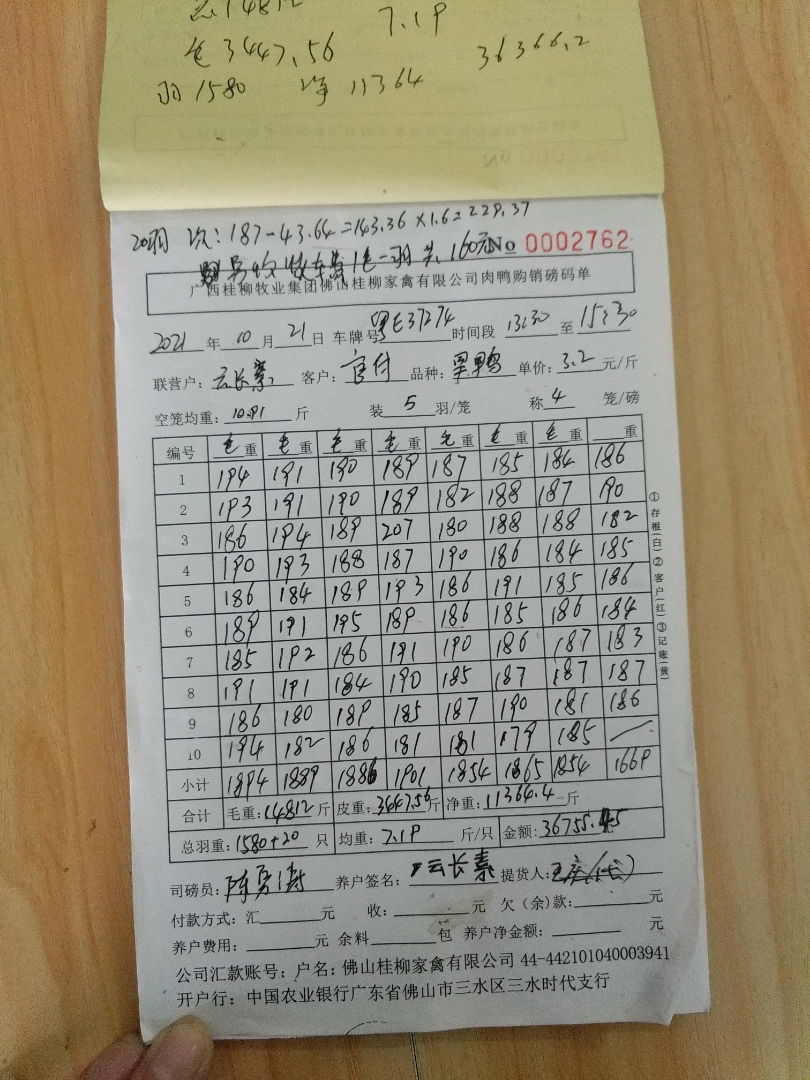 总14812
毛3447.56 7.19 36366.2
羽1580 净11364
20羽 次:187-43.64=143.36×1.6=229.37
另收 1毛一羽 共160元
No 0002762
广西桂柳牧业集团佛山桂柳家禽有限公司肉鸭购销磅码单
2021年10月21日 车牌号 E37274 时间段 13:30 至 15:30
联营户:云长素 客户:官付 品种:果鸭 单价:3.2元/斤
空笼均重:10.91斤 装5羽/笼 称4笼/磅
编号 毛重 毛重 毛重 毛重 毛重 毛重 毛重 重
1 194 191 190 189 187 185 184 186
2 193 191 190 189 182 188 187 190
3 186 194 189 207 180 188 188 182
4 190 193 188 187 190 186 184 185
5 186 184 189 193 186 191 185 186
6 189 191 195 189 186 185 186 184
7 185 192 186 191 190 186 187 183
8 191 191 184 190 185 187 187 187
9 186 180 189 185 187 190 181 186
10 194 182 186 181 181 179 185 —
小计 1894 1889 1886 1901 1854 1865 1854 1669
合计 毛重:14812斤 皮重:3447.56斤 净重:11364.4斤
总羽重:1580+20只 均重:7.19斤/只 金额:36755.45
司磅员: 养户签名:云长素 提货人:
付款方式:汇 元 收: 元 欠(余)款: 元
养户费用: 元 余料 包 养户净金额: 元
公司汇款账号:户名:佛山桂柳家禽有限公司 44-442101040003941
开户行:中国农业银行广东省佛山市三水区三水时代支行
①存根(白)②客户(红)③记账(黄)